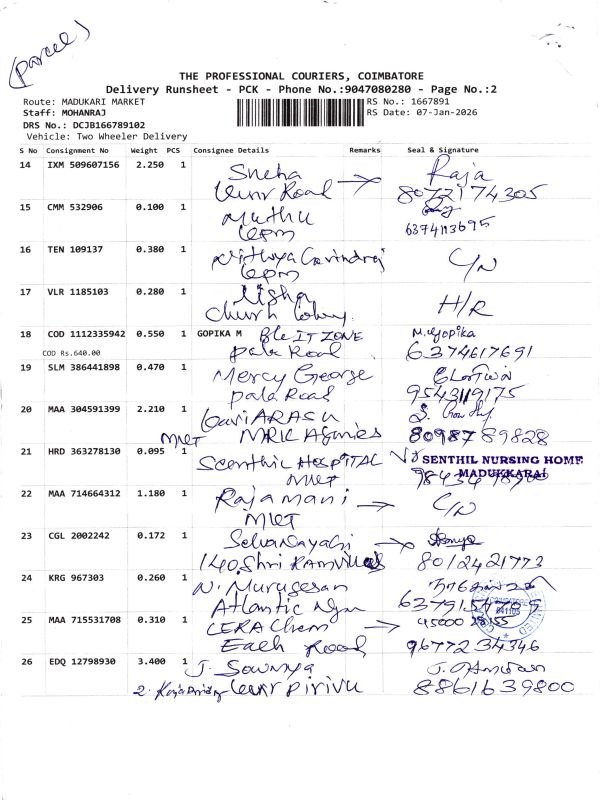 (Parcel)
THE PROFESSIONAL COURIERS, COIMBATORE
Delivery Runsheet - PCK - Phone No.:9047080280 - Page No.:2
Route: MADUKARI MARKET RS No.: 1667891
Staff: MOHANRAJ RS Date: 07-Jan-2026
DRS No.: DCJB166789102
Vehicle: Two Wheeler Delivery
S No Consignment No Weight PCS Consignee Details Remarks Seal & Signature
14 IXM 509607156 2.250 1 Sneha Raja
Road 8072174305
15 CMM 532906 0.100 1 Muthu
6374113695
16 TEN 109137 0.380 1 Nithya Govindraj C/N
17 VLR 1185103 0.280 1 Nisha H/R
Church Colony
18 COD 1112335942 0.550 1 GOPIKA M Ble IT ZONE M. Gopika
COD Rs.640.00 Pala Road 6374617691
19 SLM 386441898 0.470 1 Mercy George
Pala Road 9543119175
20 MAA 304591399 2.210 1 GaviARASU S.
MKT MRK Agencies 8098789828
21 HRD 363278130 0.095 1 Senthil HOSPITAL SENTHIL NURSING HOME
MKT MADUKKARAI
22 MAA 714664312 1.180 1 Rajamani C/N
MKT
23 CGL 2002242 0.172 1 Selvanayagi
140, Shri 8012421773
24 KRG 967303 0.260 1 N. Murugesan
Atlantic Ngr
25 MAA 715531708 0.310 1 CERA Chem
Road 9677234346
26 EDQ 12798930 3.400 1 J. Sowmya
Pirivu 8861639800